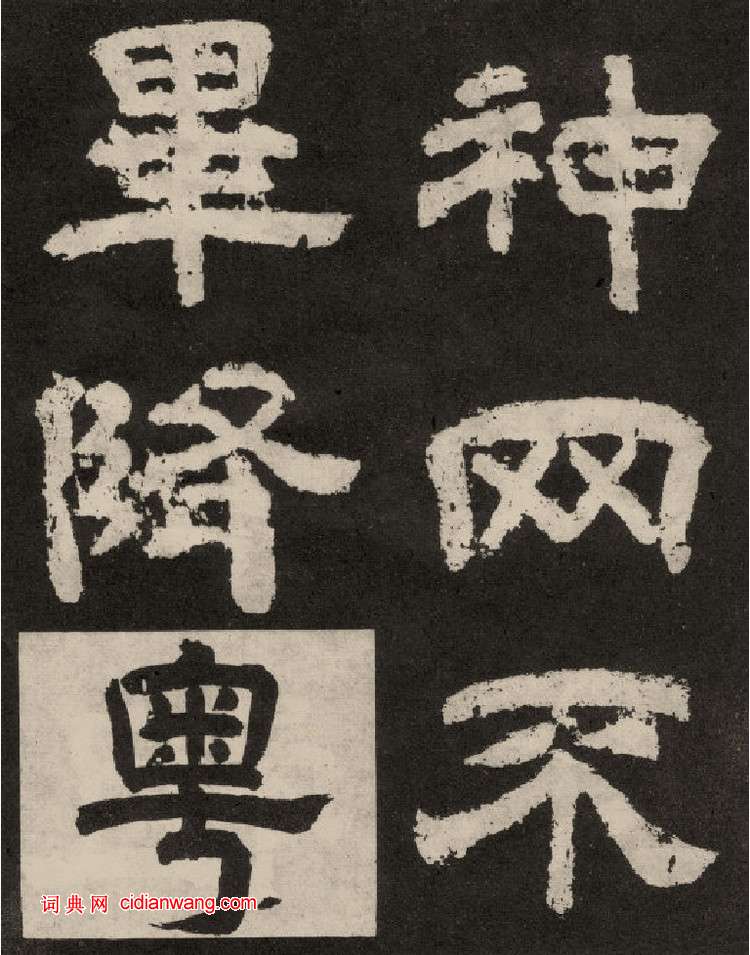 神网不
畢降粤
词典网 cidianwang.com